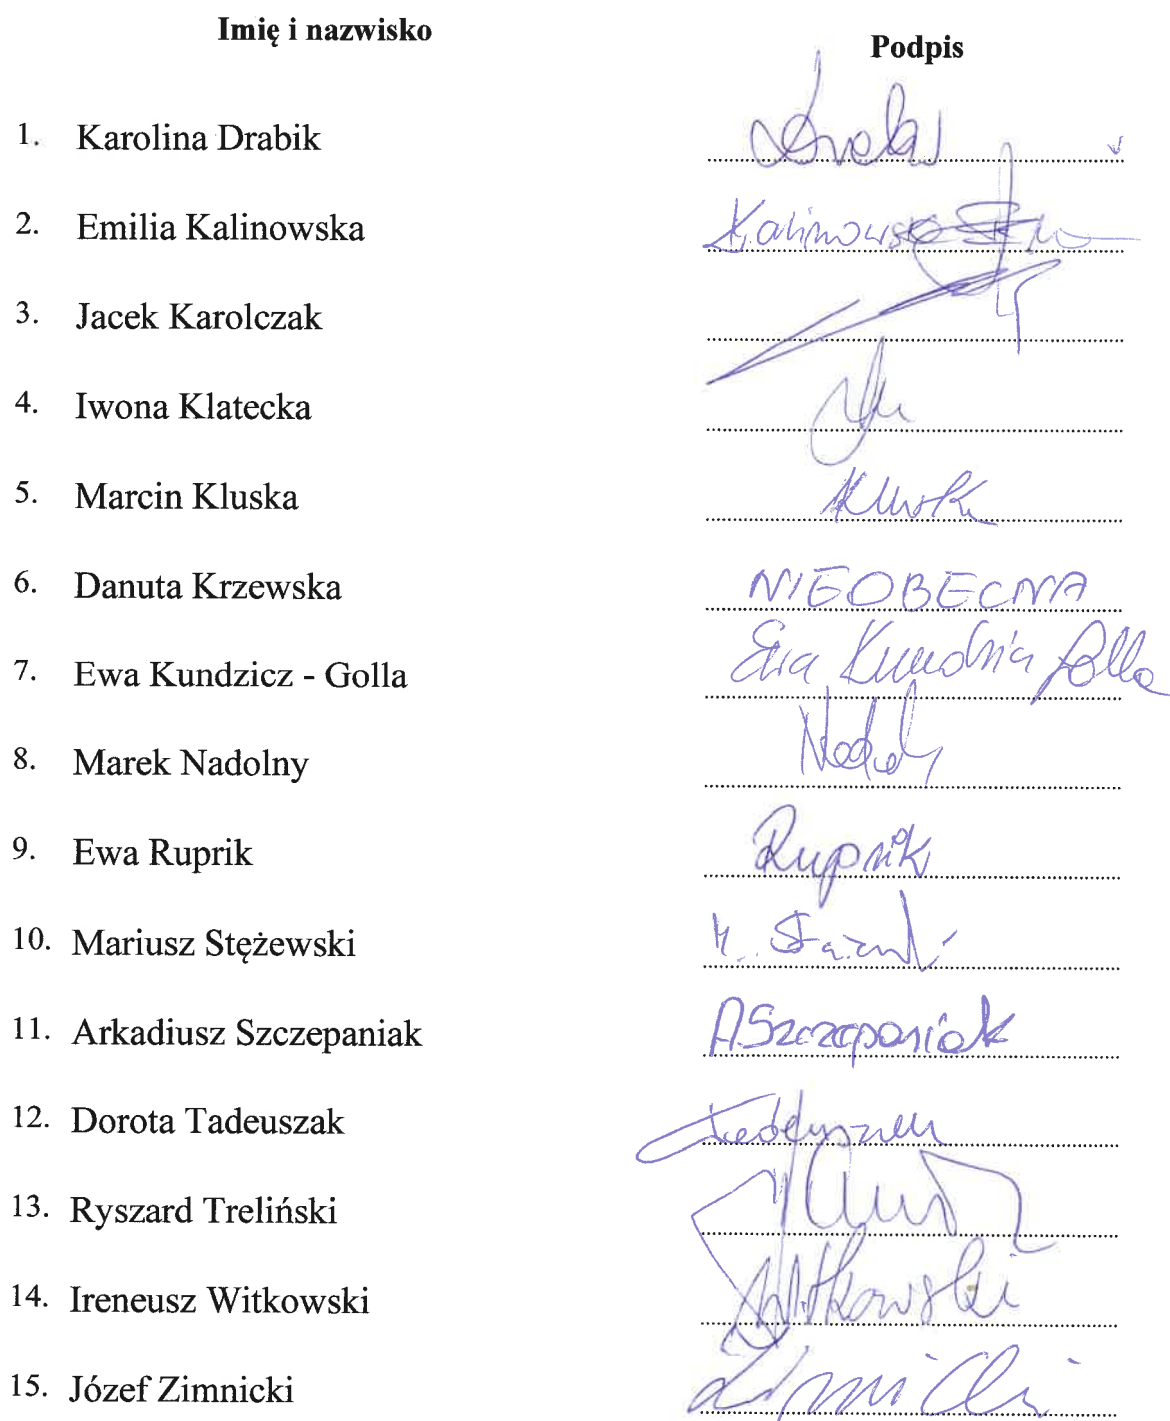 Imię i nazwisko Podpis
1. Karolina Drabik
2. Emilia Kalinowska Kalinowska
3. Jacek Karolczak
4. Iwona Klatecka
5. Marcin Kluska
6. Danuta Krzewska NIEOBECNA
7. Ewa Kundzicz - Golla Ewa Kundzicz Golla
8. Marek Nadolny
9. Ewa Ruprik Ruprik
10. Mariusz Stężewski
11. Arkadiusz Szczepaniak A Szczepaniak
12. Dorota Tadeuszak
13. Ryszard Treliński
14. Ireneusz Witkowski Witkowski
15. Józef Zimnicki Zimnicki